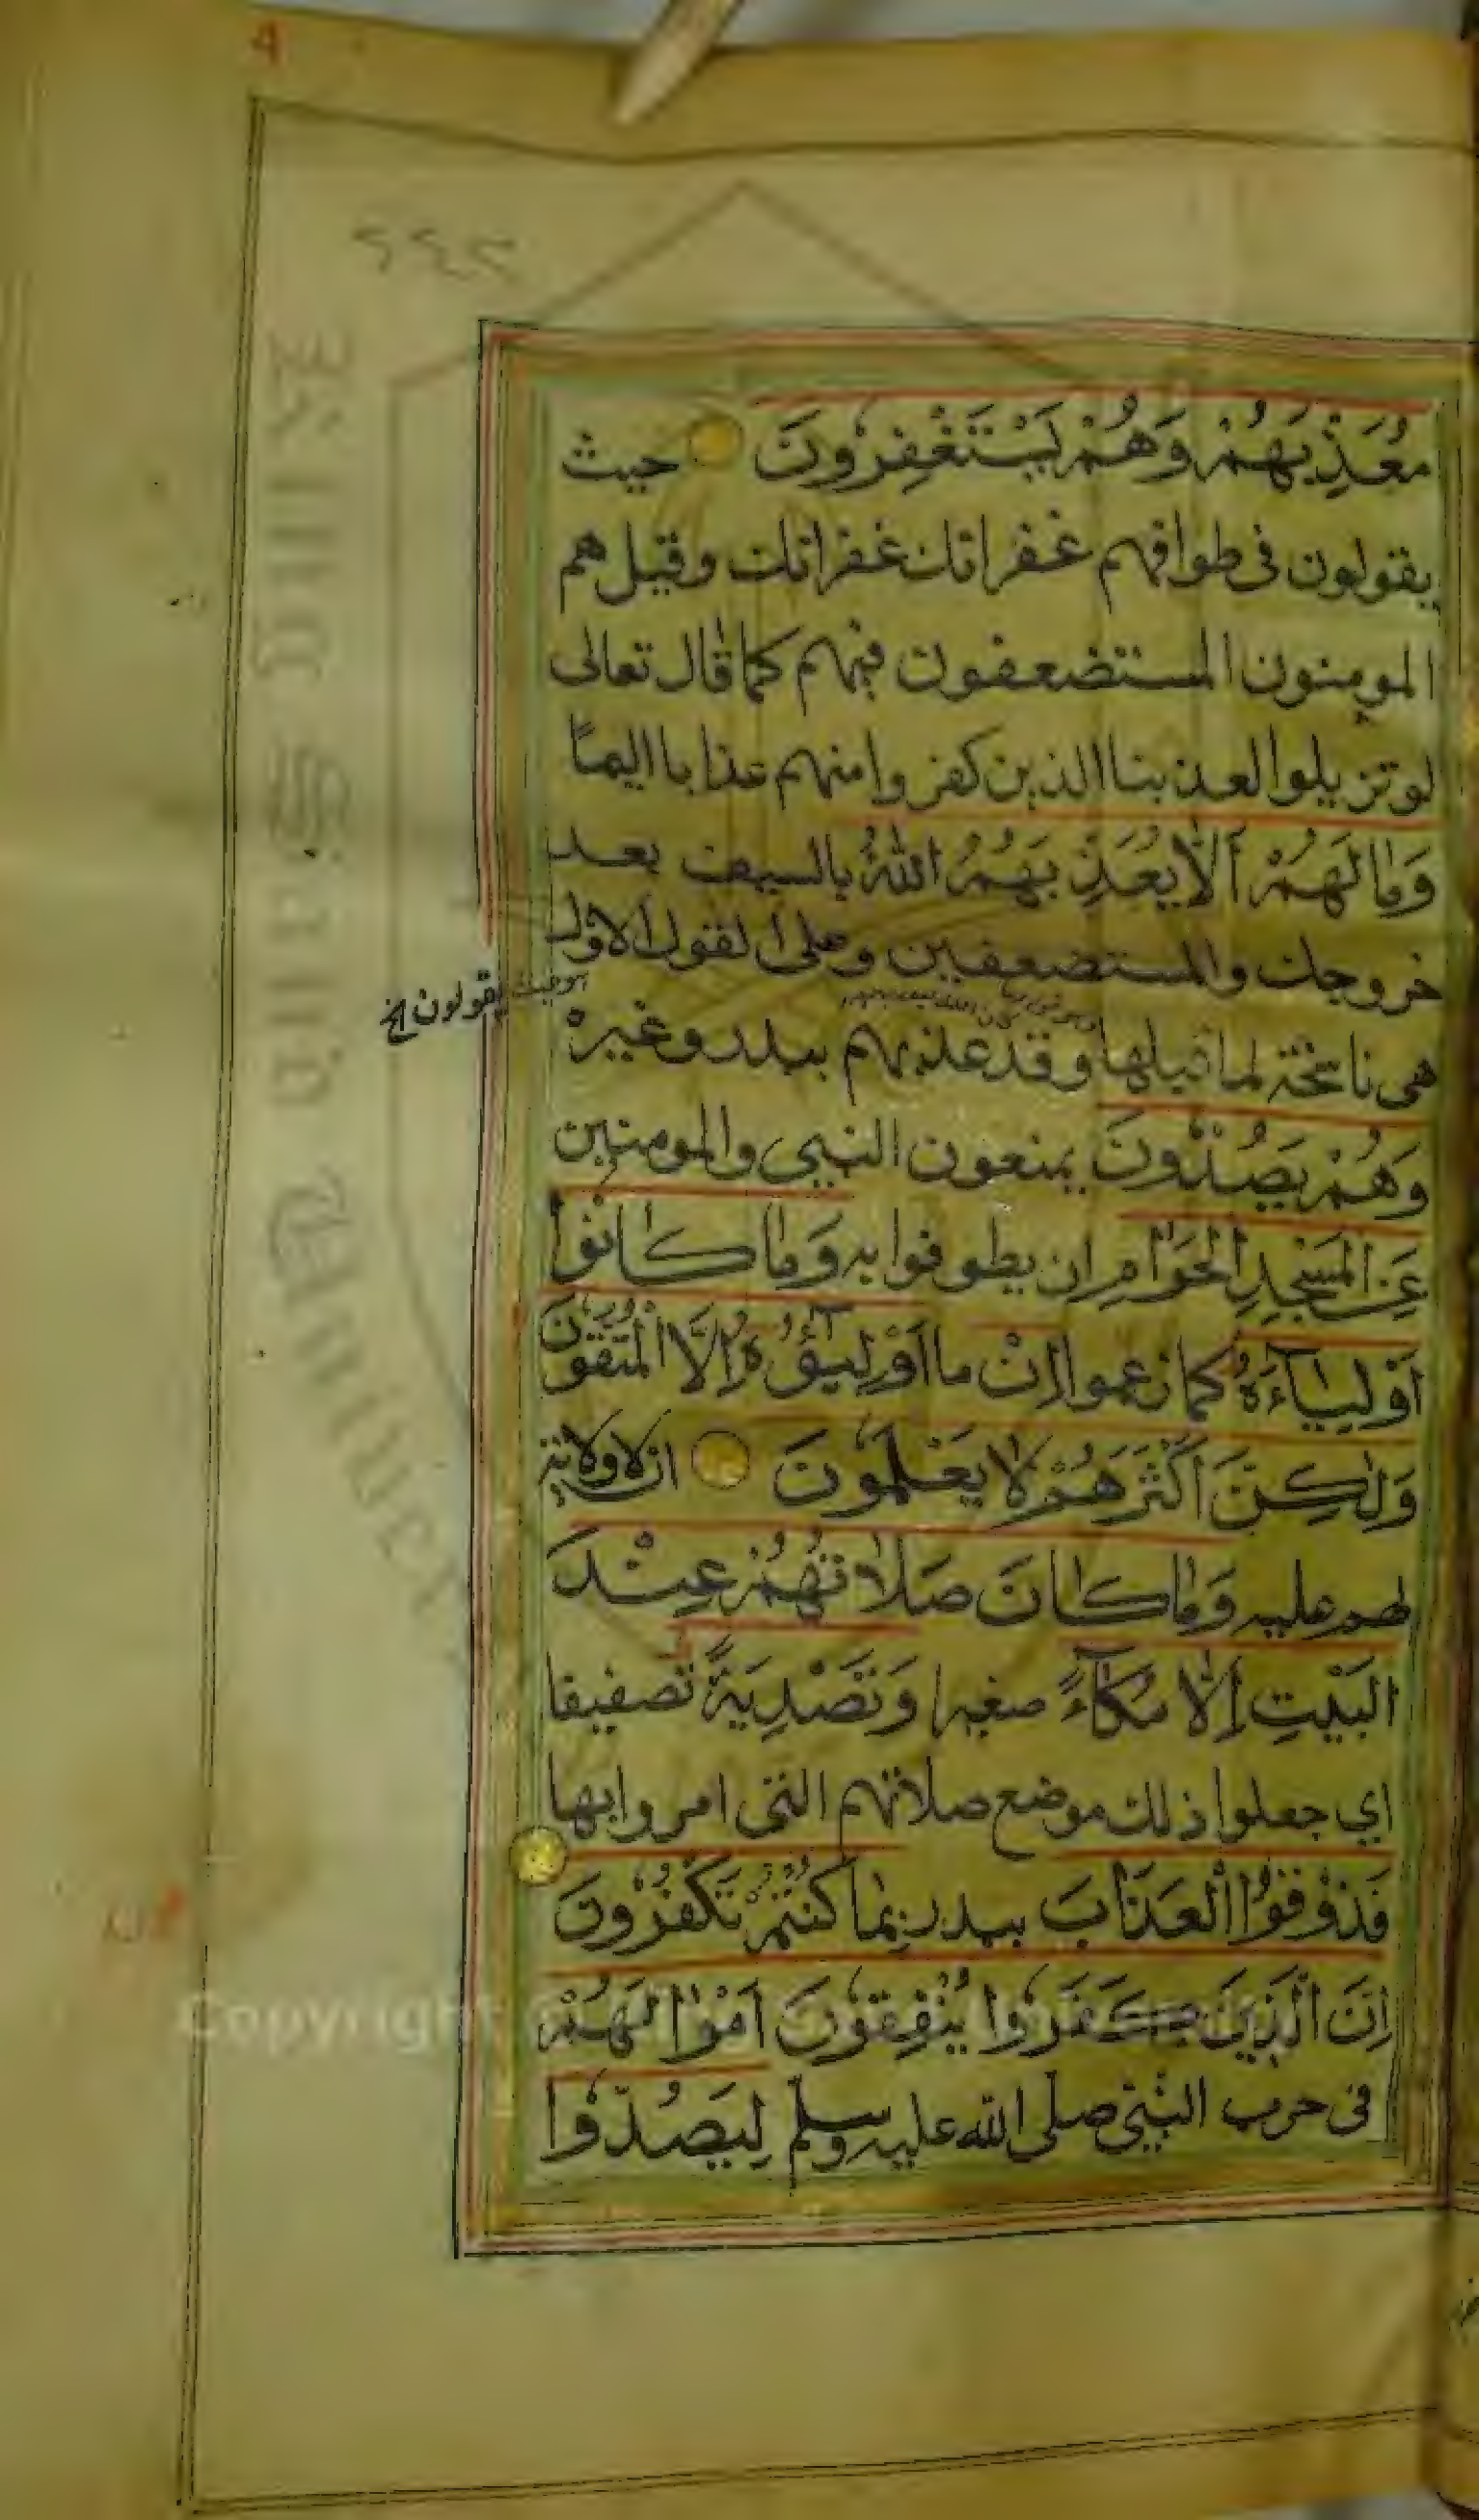 مُعَذِّبَهُمْ وَهُمْ يَسْتَغْفِرُونَ حيث
يقولون في طوافهم غفرانك غفرانك وقيل هم
المومنون المستضعفون فيهم كما قال تعالى
لو تزيلوا لعذبنا الذين كفروا منهم عذابا اليمًا
وَمَا لَهُمْ أَلَّا يُعَذِّبَهُمُ اللّٰهُ بالسيف بعد
خروجك والمستضعفين وعلى القول الاول
يقولون الخ
هي ناسخة لما قبلها وقد عذبهم ببدر وغيره
وَهُمْ يَصُدُّونَ يمنعون النبي والمومنين
عَنِ الْمَسْجِدِ الْحَرَامِ ان يطوفوا به وَمَا كَانُوا
أَوْلِيَآءَهُ كما زعموا إِنْ ما أَوْلِيَآؤُهُ إِلَّا الْمُتَّقُونَ
وَلٰكِنَّ أَكْثَرَهُمْ لَا يَعْلَمُونَ ان لا ولاية
لهم عليه وَمَا كَانَ صَلَاتُهُمْ عِنْدَ
الْبَيْتِ إِلَّا مُكَآءً صفيرا وَتَصْدِيَةً تصفيقا
اي جعلوا ذلك موضع صلاتهم التي امروا بها
فَذُوقُوا الْعَذَابَ ببدر بِمَا كُنْتُمْ تَكْفُرُونَ
إِنَّ الَّذِينَ كَفَرُوا يُنْفِقُونَ أَمْوَالَهُمْ
في حرب النبي صلى الله عليه وسلم لِيَصُدُّوا
Copyright